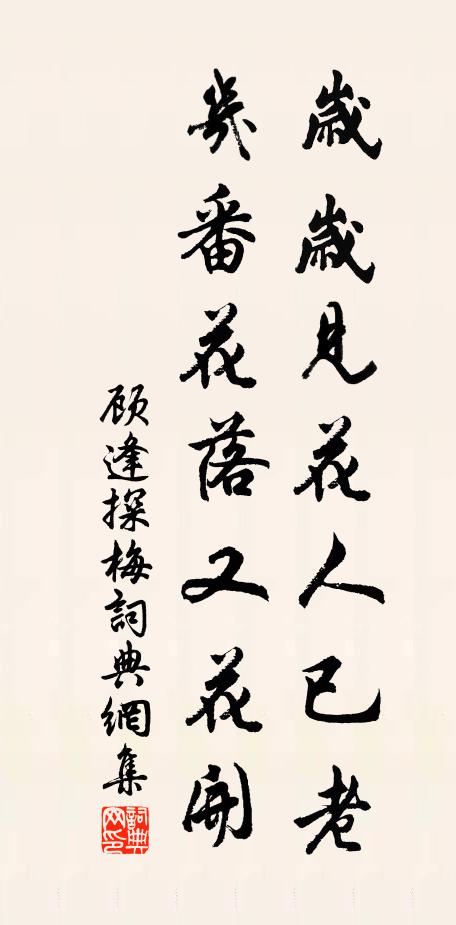 歲歲見花人已老
幾番花落又花開
顾逢探梅詞典網集
詞典网印